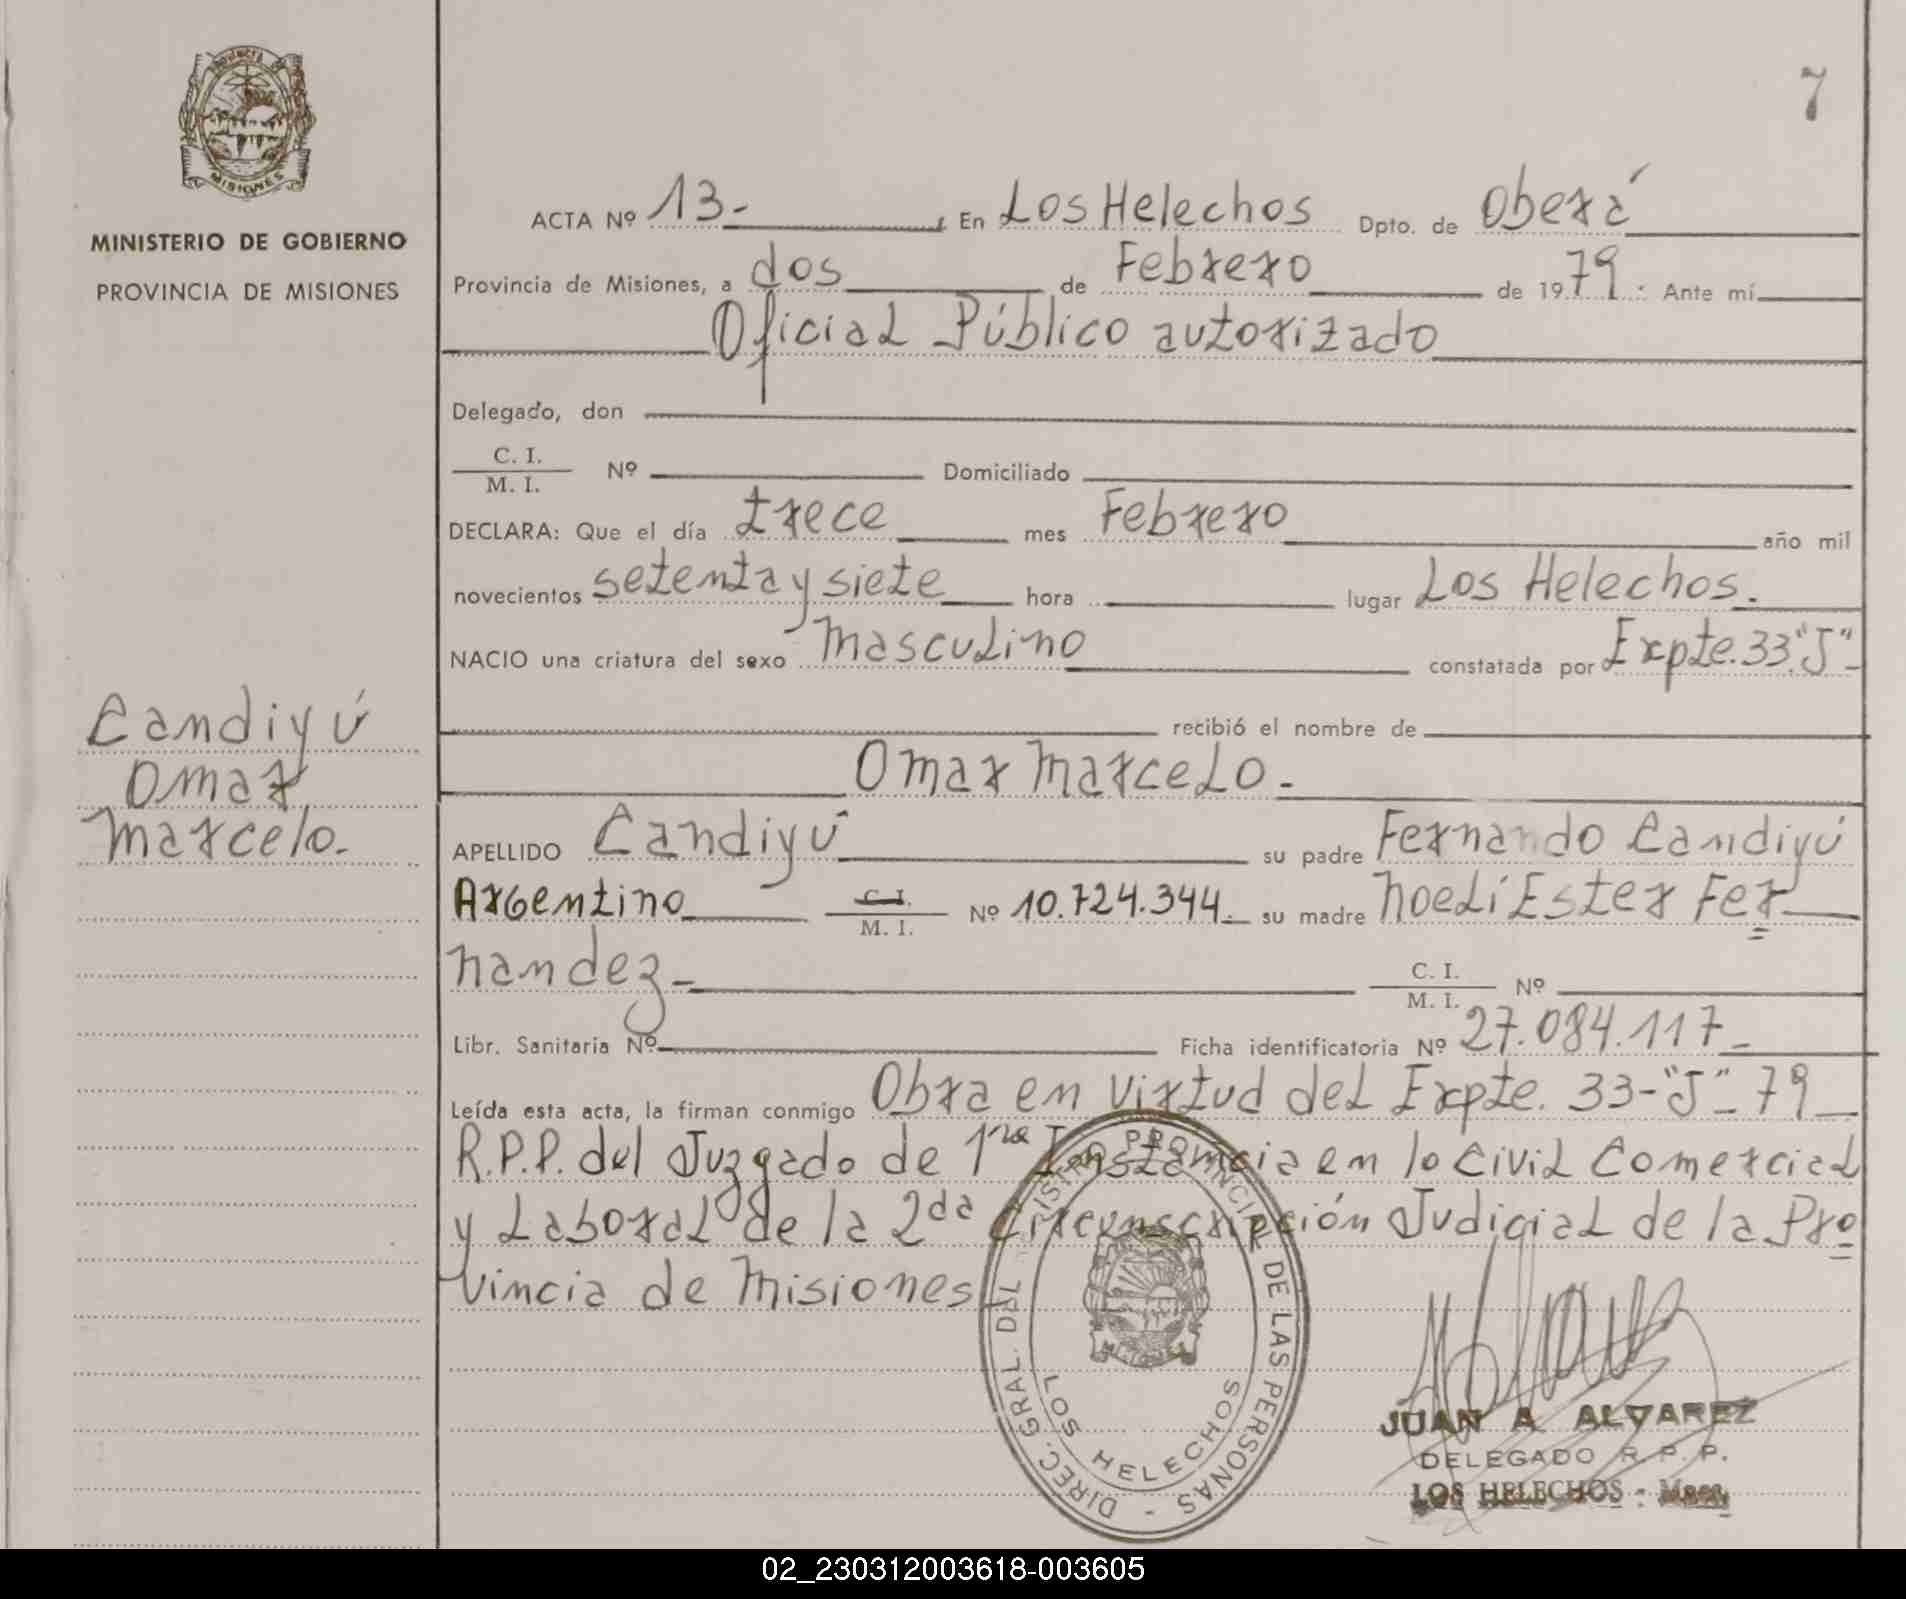 7
PROVINCIA DE
MISIONES
MINISTERIO DE GOBIERNO
PROVINCIA DE MISIONES
ACTA Nº 13- En Los Helechos Dpto. de Oberá
Provincia de Misiones, a dos de Febrero de 1979: Ante mí
Oficial Público autorizado
Delegado, don
C. I.
M. I. Nº Domiciliado
DECLARA: Que el día trece mes Febrero año mil
novecientos setenta y siete hora lugar Los Helechos.
NACIO una criatura del sexo masculino constatada por Expte. 33 "J"-
recibió el nombre de
Omar Marcelo.-
Candiyú
Omar
Marcelo.-
APELLIDO Candiyú su padre Fernando Candiyú
Argentino C. I.
M. I. Nº 10.724.344.- su madre Noelí Ester Fer
nandez- C. I.
M. I. Nº
Libr. Sanitaria Nº Ficha identificatoria Nº 27.084.117-
Leída esta acta, la firman conmigo Obra en virtud del Expte. 33-"J"-79-
R.P.P. del Juzgado de 1ra Instancia en lo Civil Comercial
y Laboral de la 2da Circunscripción Judicial de la Pro
vincia de Misiones
DIREC. GRAL. DEL REGISTRO PROVINCIAL DE LAS PERSONAS -
LOS HELECHOS
JUAN A. ALVAREZ
DELEGADO R. P. P.
LOS HELECHOS - Mnes.
02_230312003618-003605